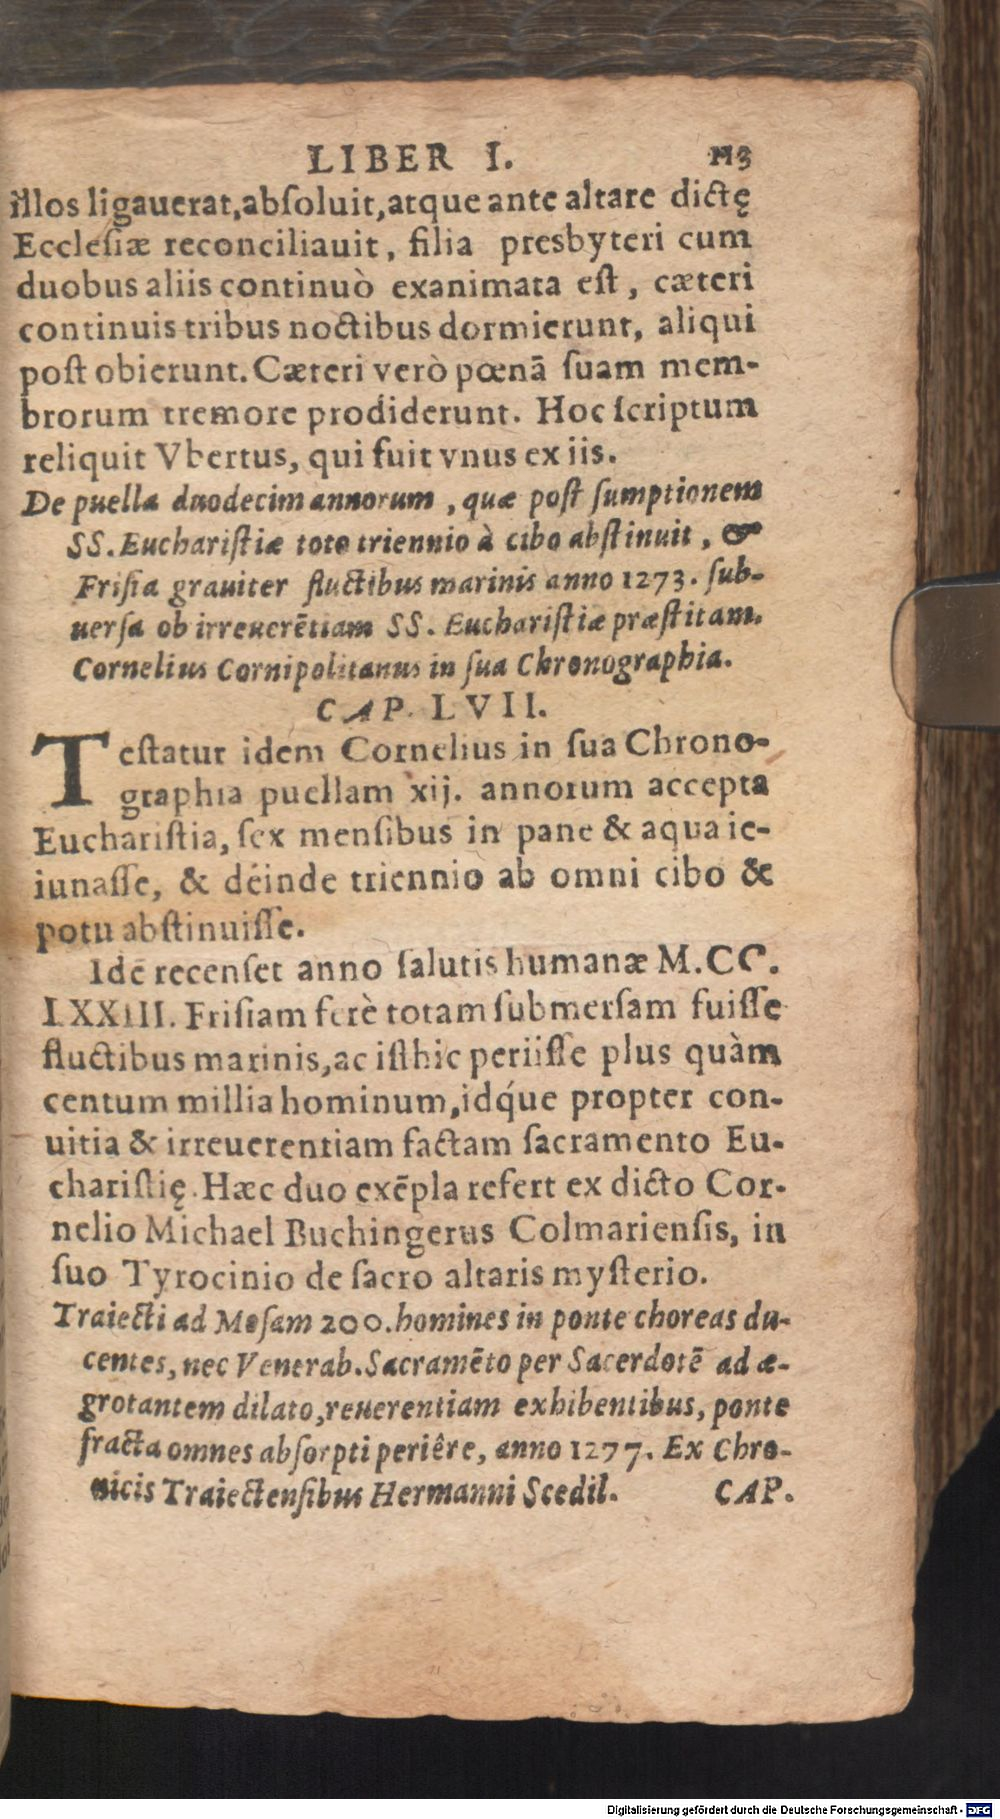 LIBER I. 113
illos ligauerat, absoluit, atque ante altare dictę
Ecclesiæ reconciliauit, filia presbyteri cum
duobus aliis continuò exanimata est, cæteri
continuis tribus noctibus dormierunt, aliqui
post obierunt. Cæteri verò pœnā suam mem-
brorum tremore prodiderunt. Hoc scriptum
reliquit Vbertus, qui fuit vnus ex iis.
De puella duodecim annorum, quæ post sumptionem
SS. Eucharistiæ toto triennio à cibo abstinuit, &
Frisia grauiter fluctibus marinis anno 1273. sub-
uersa ob irreuerētiam SS. Eucharistiæ præstitam.
Cornelius Cornipolitanus in sua Chronographia.
CAP. LVII.
Testatur idem Cornelius in sua Chrono-
graphia puellam xij. annorum accepta
Eucharistia, sex mensibus in pane & aqua ie-
iunasse, & deinde triennio ab omni cibo &
potu abstinuisse.
Idē recenset anno salutis humanæ M.CC.
LXXIII. Frisiam ferè totam submersam fuisse
fluctibus marinis, ac isthic periisse plus quàm
centum millia hominum, idq́ue propter con-
uitia & irreuerentiam factam sacramento Eu-
charistię. Hæc duo exēpla refert ex dicto Cor-
nelio Michael Buchingerus Colmariensis, in
suo Tyrocinio de sacro altaris mysterio.
Traiecti ad Mosam 200. homines in ponte choreas du-
centes, nec Venerab. Sacramēto per Sacerdotē ad æ-
grotantem dilato, reuerentiam exhibentibus, ponte
fracta omnes absorpti periêre, anno 1277. Ex Chro-
nicis Traiectensibus Hermanni Scedil. CAP.
Digitalisierung gefördert durch die Deutsche Forschungsgemeinschaft - DFG